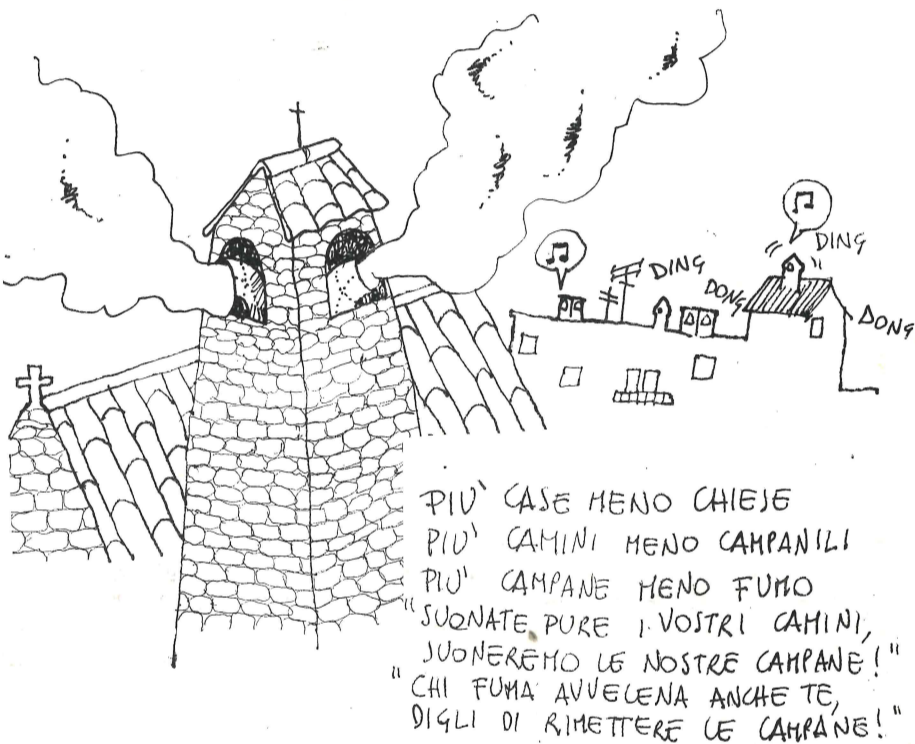 DING
DING
DONG
DONG
PIU' CASE MENO CHIESE
PIU' CAMINI MENO CAMPANILI
PIU' CAMPANE MENO FUMO
"SUONATE PURE I VOSTRI CAMINI,
SUONEREMO LE NOSTRE CAMPANE!"
"CHI FUMA AVVELENA ANCHE TE,
DIGLI DI RIMETTERE LE CAMPANE!"